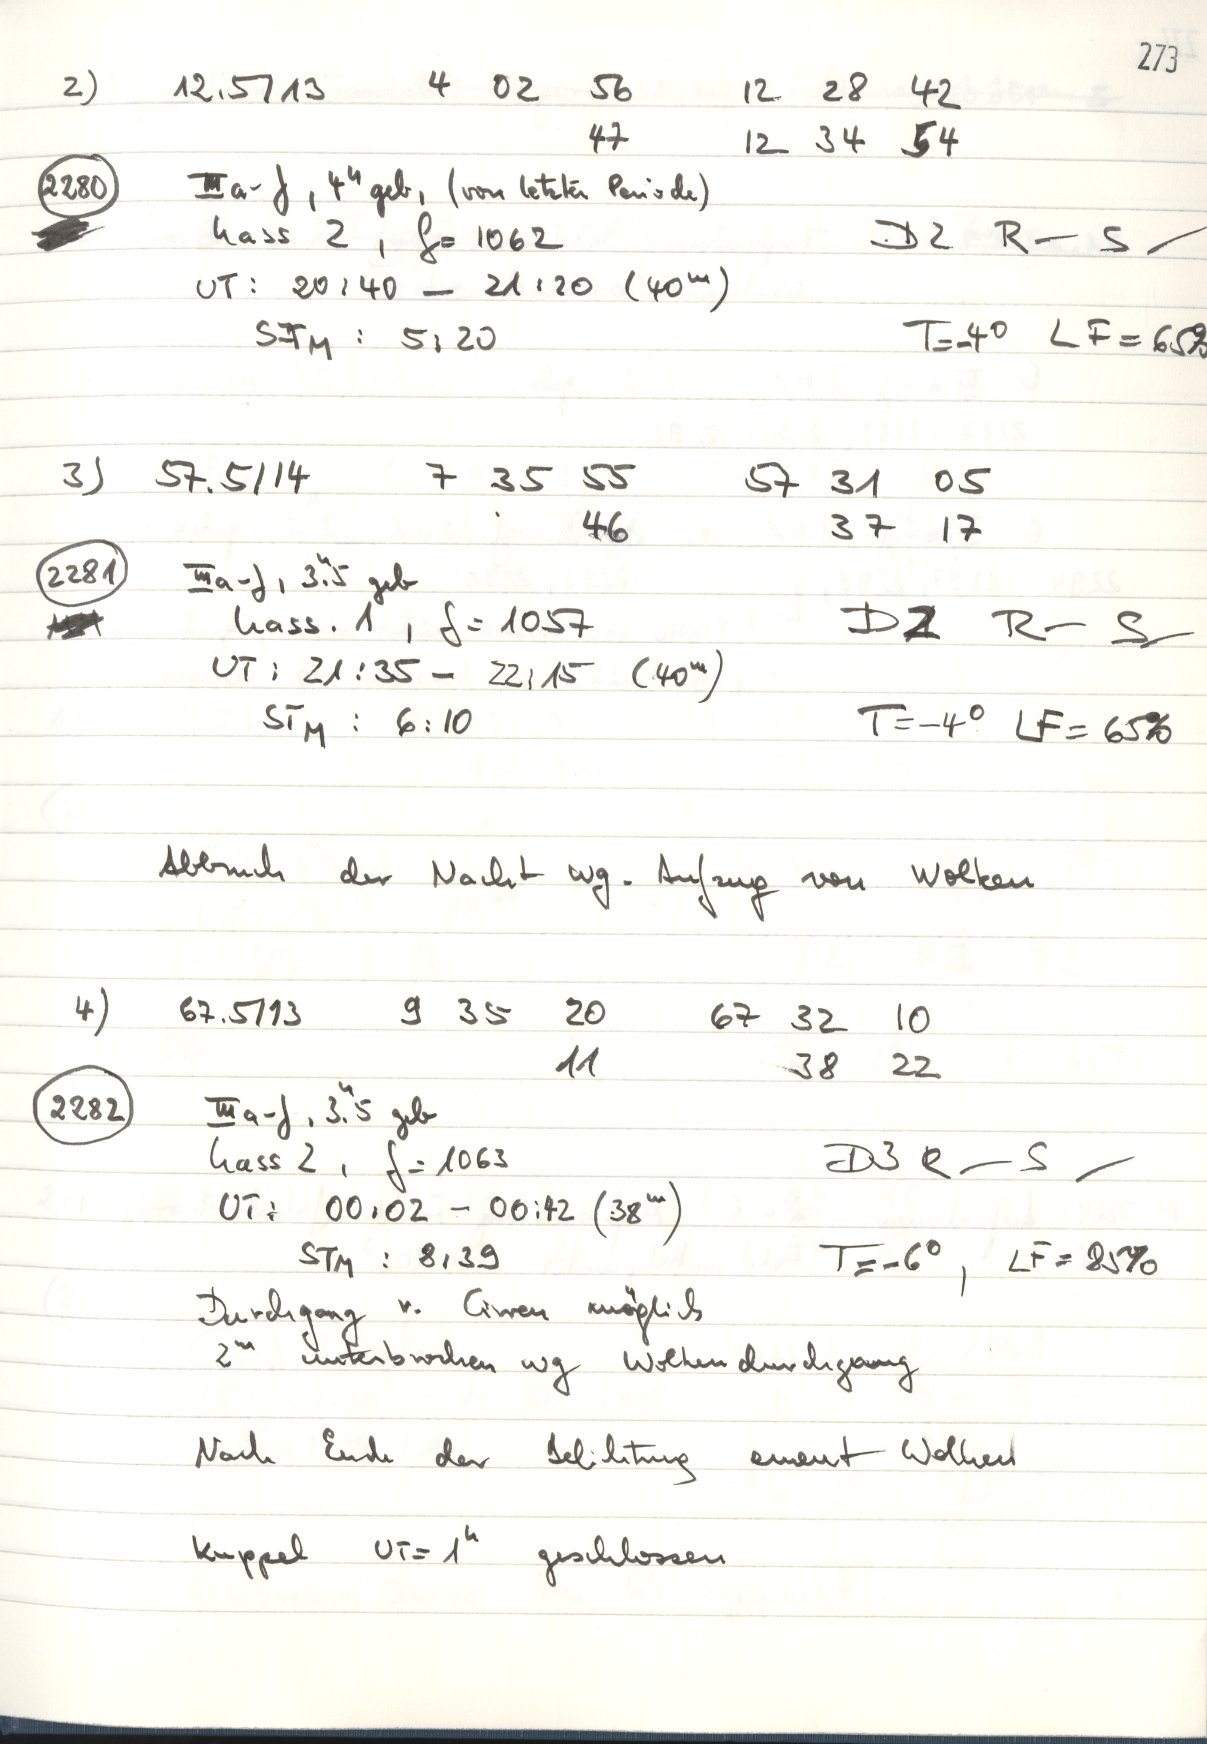 273
2) 12.5/13 4 02 56 12 28 42
47 12 34 54
2280 IIIa-J, 4h geb, (von letzter Periode)
Kass 2, f = 1062 D2 R — S —
UT: 20:40 — 21:20 (40m)
STM : 5:20 T=-4° LF = 65%
3) 57.5/14 7 35 55 57 31 05
46 37 17
2281 IIIa-J, 3.h5 geb
Kass. 1, f = 1057 D2 R — S —
UT: 21:35 — 22:15 (40m)
STM : 6:10 T=-4° LF = 65%
Abbruch der Nacht wg. Aufzug von Wolken
4) 67.5/13 9 35 20 67 32 10
11 38 22
2282 IIIa-J, 3.h5 geb
Kass 2, f = 1063 D3 R — S —
UT: 00:02 — 00:42 (38m)
STM : 8:39 T=-6°, LF = 85%
Durchgang v. Cirren möglich
2m unterbrochen wg Wolkendurchgang
Nach Ende der Belichtung erneut Wolken
Kuppel UT=1h geschlossen